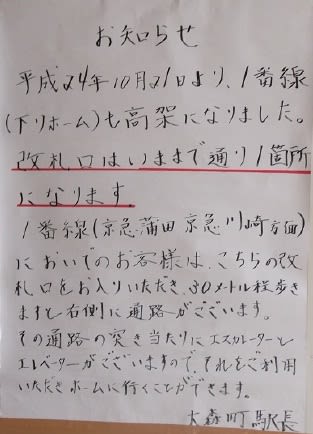 お知らせ
平成24年10月21日より、1番線
(下りホーム)も高架になりました。
改札口はいままで通り1箇所
になります。
1番線(京急蒲田 京急川崎方面)
においでのお客様は、こちらの改
札口をお入りいただき、30メートル程歩き
ますと右側に通路がございます。
その通路の突き当たりにエスカレーターと
エレベーターがございますので、それをご利用
いただきホームに行くことができます。
大森町駅長